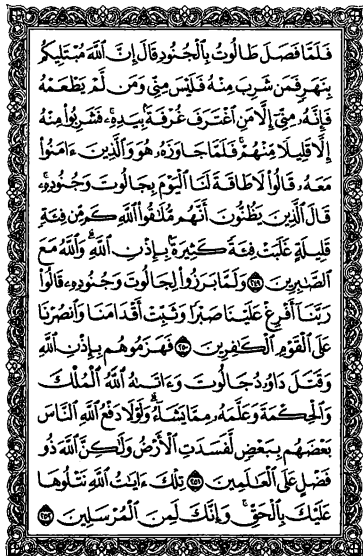 فَلَمَّا فَصَلَ طَالُوتُ بِٱلْجُنُودِ قَالَ إِنَّ ٱللَّهَ مُبْتَلِيكُم
بِنَهَرٍ فَمَن شَرِبَ مِنْهُ فَلَيْسَ مِنِّي وَمَن لَّمْ يَطْعَمْهُ
فَإِنَّهُۥ مِنِّيٓ إِلَّا مَنِ ٱغْتَرَفَ غُرْفَةًۢ بِيَدِهِۦۚ فَشَرِبُوا۟ مِنْهُ
إِلَّا قَلِيلًا مِّنْهُمْۚ فَلَمَّا جَاوَزَهُۥ هُوَ وَٱلَّذِينَ ءَامَنُوا۟
مَعَهُۥ قَالُوا۟ لَا طَاقَةَ لَنَا ٱلْيَوْمَ بِجَالُوتَ وَجُنُودِهِۦۚ
قَالَ ٱلَّذِينَ يَظُنُّونَ أَنَّهُم مُّلَٰقُوا۟ ٱللَّهِ كَم مِّن فِئَةٍ
قَلِيلَةٍ غَلَبَتْ فِئَةً كَثِيرَةًۢ بِإِذْنِ ٱللَّهِۗ وَٱللَّهُ مَعَ
ٱلصَّٰبِرِينَ ٢٤٩ وَلَمَّا بَرَزُوا۟ لِجَالُوتَ وَجُنُودِهِۦ قَالُوا۟
رَبَّنَآ أَفْرِغْ عَلَيْنَا صَبْرًا وَثَبِّتْ أَقْدَامَنَا وَٱنصُرْنَا
عَلَى ٱلْقَوْمِ ٱلْكَٰفِرِينَ ٢٥٠ فَهَزَمُوهُم بِإِذْنِ ٱللَّهِ
وَقَتَلَ دَاوُۥدُ جَالُوتَ وَءَاتَىٰهُ ٱللَّهُ ٱلْمُلْكَ
وَٱلْحِكْمَةَ وَعَلَّمَهُۥ مِمَّا يَشَآءُۗ وَلَوْلَا دَفْعُ ٱللَّهِ ٱلنَّاسَ
بَعْضَهُم بِبَعْضٍ لَّفَسَدَتِ ٱلْأَرْضُ وَلَٰكِنَّ ٱللَّهَ ذُو
فَضْلٍ عَلَى ٱلْعَٰلَمِينَ ٢٥١ تِلْكَ ءَايَٰتُ ٱللَّهِ نَتْلُوهَا
عَلَيْكَ بِٱلْحَقِّۚ وَإِنَّكَ لَمِنَ ٱلْمُرْسَلِينَ ٢٥٢